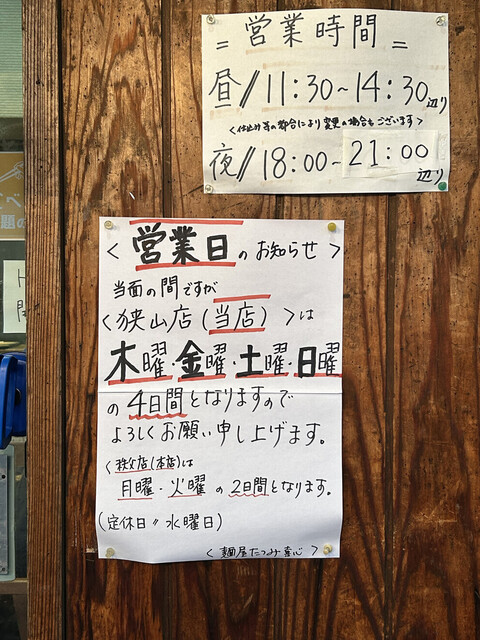 = 営業時間 =
昼// 11:30~14:30辺り
<仕込み等の都合により変更の場合もございます>
夜// 18:00~21:00辺り
<営業日のお知らせ>
当面の間ですが
<狭山店(当店)>は
木曜・金曜・土曜・日曜
の4日間となりますので
よろしくお願い申し上げます。
<秩父店(本店)は
月曜・火曜の2日間となります。
(定休日〃水曜日)
<麺屋たつみ喜心>